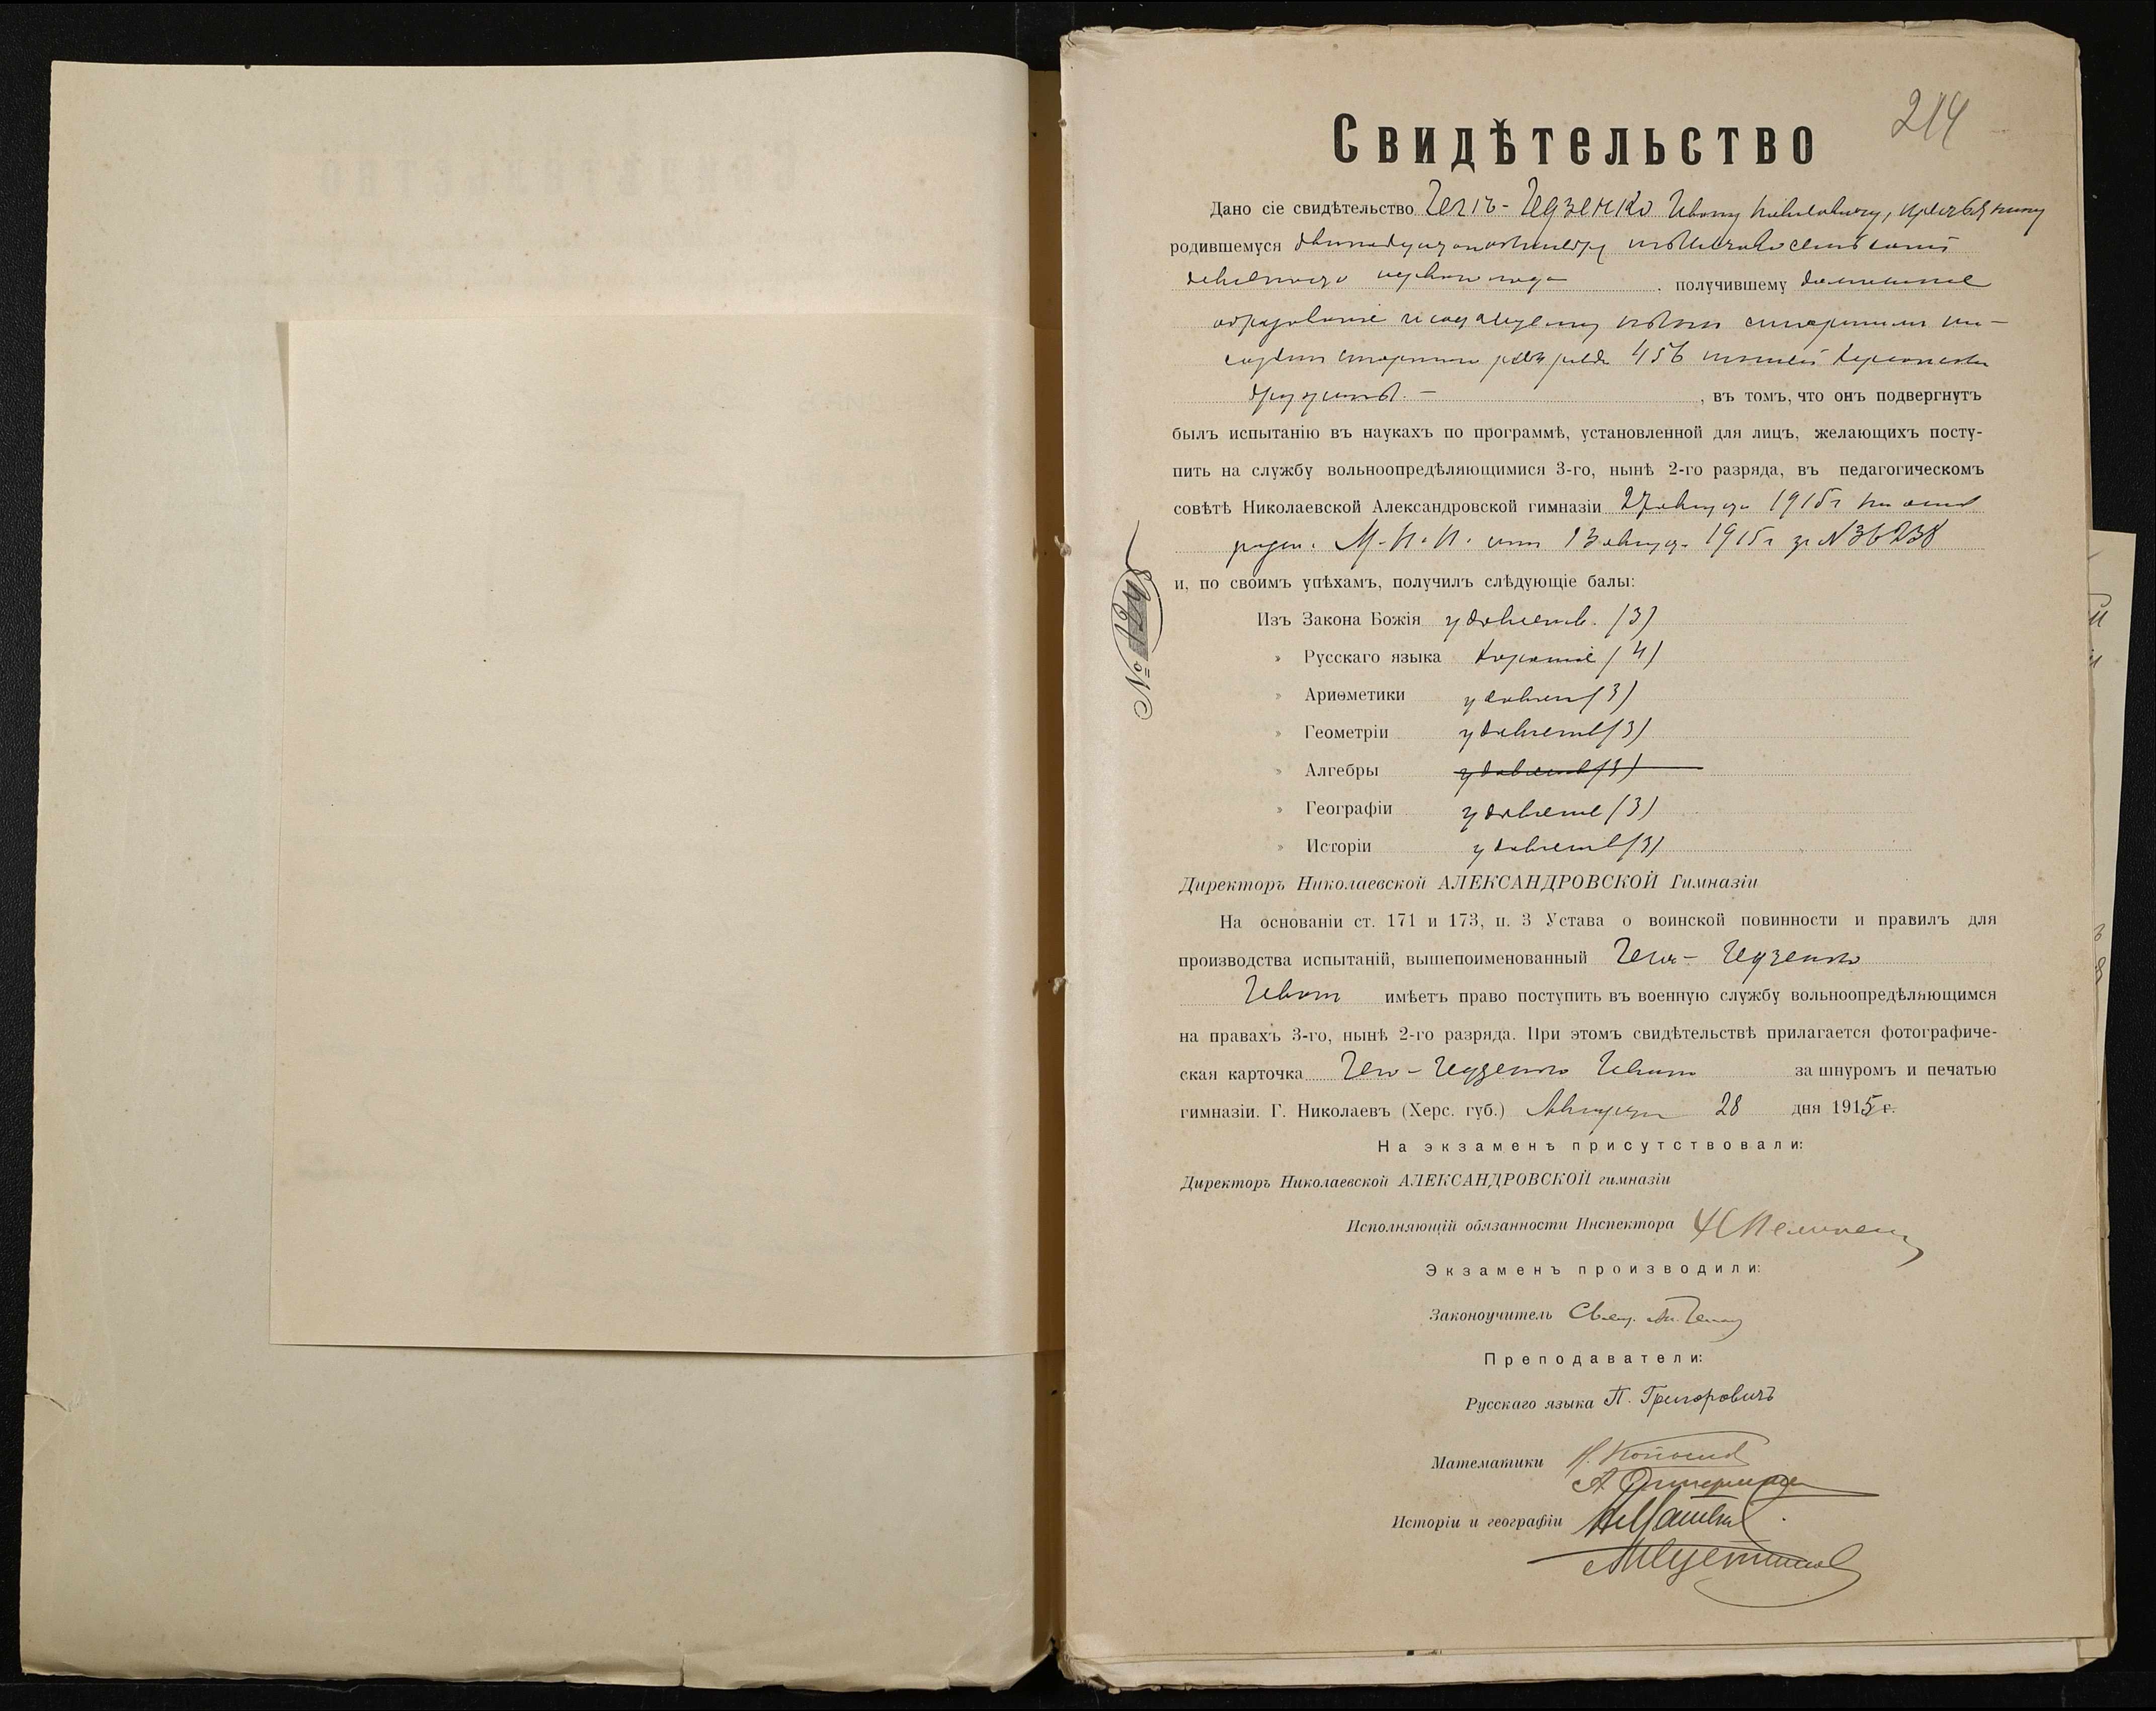 214
Свидѣтельство
Дано сіе свидѣтельство Ивану Павловичу, крестьянину
родившемуся двѣнадцатаго тысяча восемьсотъ
девяносто перваго года получившему домашнее
образованіе и состоящему нынѣ старшимъ пи-
саремъ старшаго разряда 456 пѣшей Херсонской
дружины. — , въ томъ, что онъ подвергнутъ
былъ испытанію въ наукахъ по программѣ, установленной для лицъ, желающихъ посту-
пить на службу вольноопредѣляющимися 3-го, нынѣ 2-го разряда, въ педагогическомъ
совѣтѣ Николаевской Александровской гимназіи 27 августа 1915 г на основ
М. Н. П. отъ 13 августа 1915 г за № 36238
и, по своимъ упѣхамъ, получилъ слѣдующіе балы:
№ 1248
Изъ Закона Божія удовлетв. (3)
» Русскаго языка хорошіе (4)
» Ариѳметики удовлет (3)
» Геометріи удовлетв (3)
» Алгебры удовлетв (3)
» Географіи удовлетв (3)
» Исторіи удовлетв (3)
Директоръ Николаевской АЛЕКСАНДРОВСКОЙ Гимназіи
На основаніи ст. 171 и 173, п. 3 Устава о воинской повинности и правилъ для
производства испытаній, вышепоименованный
Иванъ имѣетъ право поступить въ военную службу вольноопредѣляющимся
на правахъ 3-го, нынѣ 2-го разряда. При этомъ свидѣтельствѣ прилагается фотографиче-
ская карточка Ивана за шнуромъ и печатью
гимназіи. Г. Николаевъ (Херс. губ.) Августа 28 дня 1915 г.
На экзаменѣ присутствовали:
Директоръ Николаевской АЛЕКСАНДРОВСКОЙ гимназіи
Исполняющій обязанности Инспектора
Экзаменъ производили:
Законоучитель Свящ.
Преподаватели:
Русскаго языка П. Григоровичъ
Математики
Исторіи и географіи